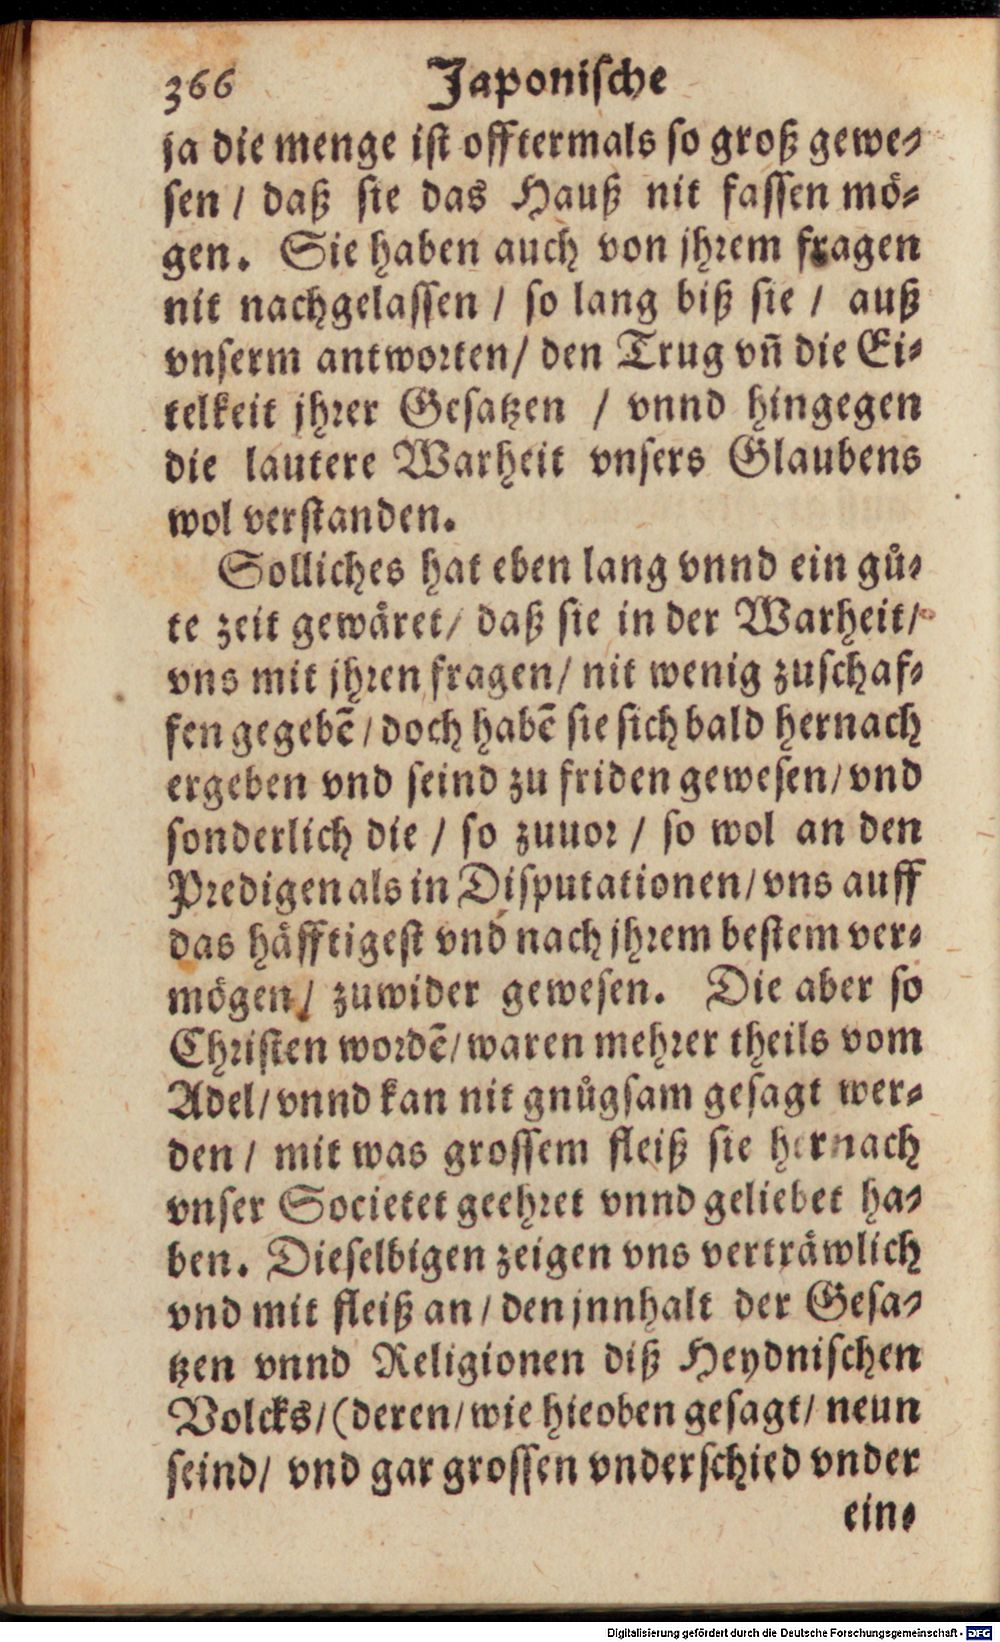 366 Japonische
ja die menge ist offtermals so groß gewe-
sen / daß sie das Hauß nit fassen mö-
gen. Sie haben auch von jhrem fragen
nit nachgelassen / so lang biß sie / auß
vnserm antworten/ den Trug vñ die Ei-
telkeit jhrer Gesatzen / vnnd hingegen
die lautere Warheit vnsers Glaubens
wol verstanden.
Solliches hat eben lang vnnd ein gů-
te zeit gewäret/ daß sie in der Warheit/
vns mit jhren fragen/ nit wenig zuschaf-
fen gegebē/ doch habē sie sich bald hernach
ergeben vnd seind zu friden gewesen/ vnd
sonderlich die / so zuuor / so wol an den
Predigen als in Disputationen/ vns auff
das häfftigest vnd nach jhrem bestem ver-
mögen/ zuwider gewesen. Die aber so
Christen wordē/ waren mehrer theils vom
Adel/ vnnd kan nit gnůgsam gesagt wer-
den / mit was grossem fleiß sie hernach
vnser Societet geehret vnnd geliebet ha-
ben. Dieselbigen zeigen vns verträwlich
vnd mit fleiß an / den jnnhalt der Gesa-
tzen vnnd Religionen diß Heydnischen
Volcks/ (deren/ wie hieoben gesagt/ neun
seind/ vnd gar grossen vnderschied vnder
ein-
Digitalisierung gefördert durch die Deutsche Forschungsgemeinschaft - DFG